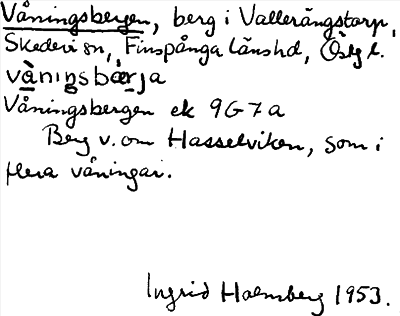 Våningsbergen, berg i Vallerängstorp,
Skedevi sn, Finspånga länshd, Östg l.
vàningsbærja
Våningsbergen ek 9G7a
Berg v. om Hasselviken, som i
flera våningar.
Ingrid Holmberg 1953.